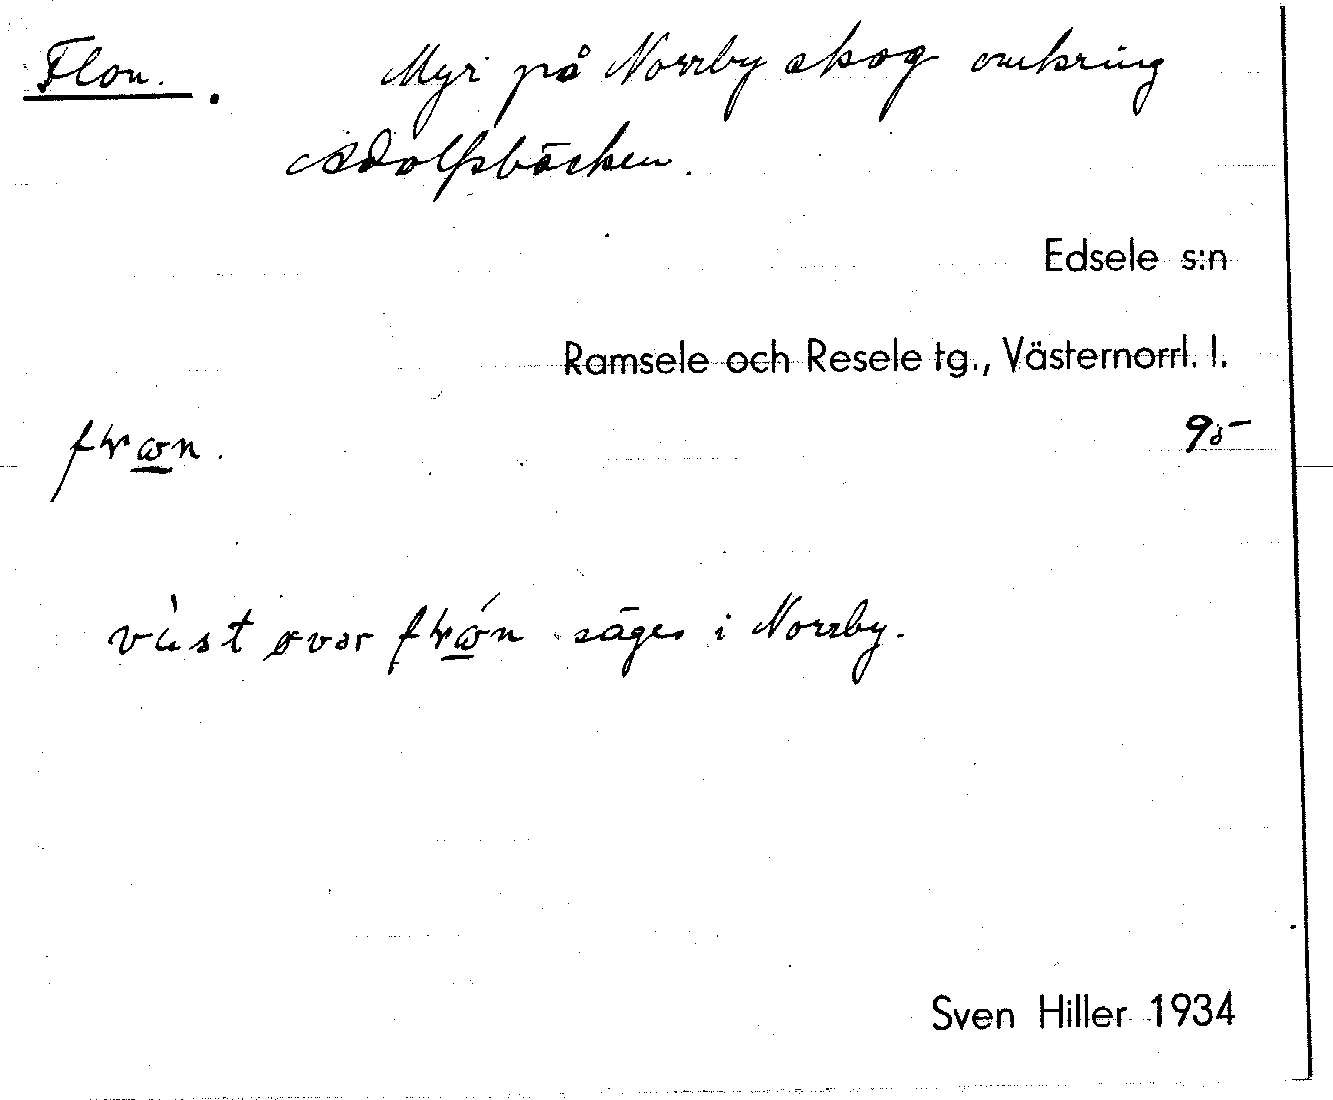 Flon. Myr på Norrby skog omkring
Adolfsbäcken.
Edsele s:n
Ramsele och Resele tg., Västernorrl. l.
95
säges i Norrby.
Sven Hiller 1934